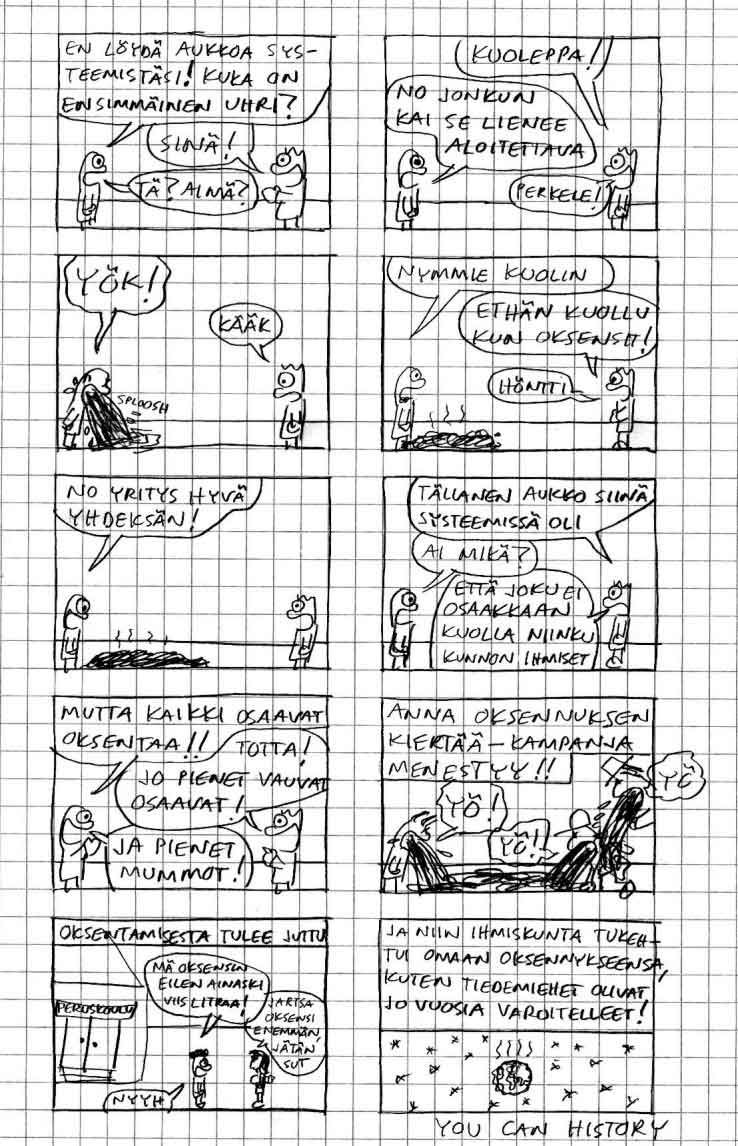 EN LÖYDÄ AUKKOA SYS-
TEEMISTÄSI! KUKA ON
ENSIMMÄINEN UHRI?
SINÄ!
TÄ? AIMÄ?
KUOLEPPA!
NO JONKUN
KAI SE LIENEE
ALOITETTAVA
PERKELE!
YÖK!
KÄÄK
SPLOOSH
NYMMIE KUOLIN
ETHÄN KUOLLU
KUN OKSENSIT!
HÖNTTI
NO YRITYS HYVÄ
YHDEKSÄN!
TÄLLANEN AUKKO SIINÄ
SYSTEEMISSÄ OLI
AI MIKÄ?
ETTÄ JOKU EI
OSAAKKAAN
KUOLLA NIINKU
KUNNON IHMISET
MUTTA KAIKKI OSAAVAT
OKSENTAA!!
TOTTA!
JO PIENET VAUVAT
OSAAVAT!
JA PIENET
MUMMOT!
ANNA OKSENNUKSEN
KIERTÄÄ-KAMPANJA
MENESTYY!!
YÖ!
YÖ!
YÖ
OKSENTAMISESTA TULEE JUTTU
PERUSKOULU
MÄ OKSENSIN
EILEN AINASKI
VIIS LITRAA!
JARTSA
OKSENSI
ENEMMÄN,
JÄTÄN
SUT
NYYH
JA NIIN IHMISKUNTA TUKEH-
TUI OMAAN OKSENNYKSEENSÄ,
KUTEN TIEDEMIEHET OLIVAT
JO VUOSIA VAROITELLEET!
YOU CAN HISTORY